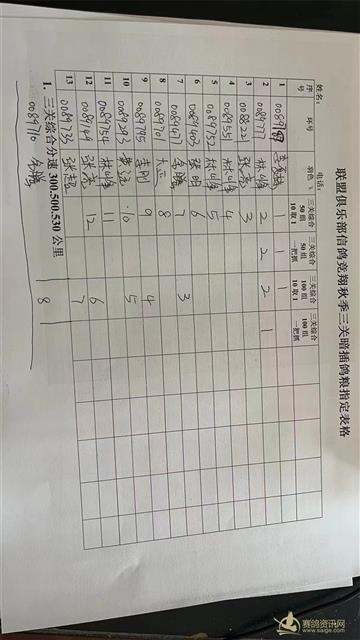 联盟俱乐部信鸽竞翔秋季三关暗插鸽粮指定表格
姓名: 电话:
序号 环号 羽色 三关综合 50组 10取1 三关综合 50组 一把抓 三关综合 100组 10取1 三关综合 100组 一把抓
1 1 1
2 0089777 林峰 2 2 2 1
3 0088221 张亮 3
4 0089551 林峰 4
5 0089752 林峰 5
6 0087403 张明 6
7 0089477 7 3
8 0089701 8
9 0089795 李刚 9 4
10 0089293 10 5
11 0089754 林峰 11
12 0089749 张亮 12 6
13 0089733 张超 7
1. 三关综合分速 300.500.530 公里
0089710 8
赛鸽资讯网
www.saige.com